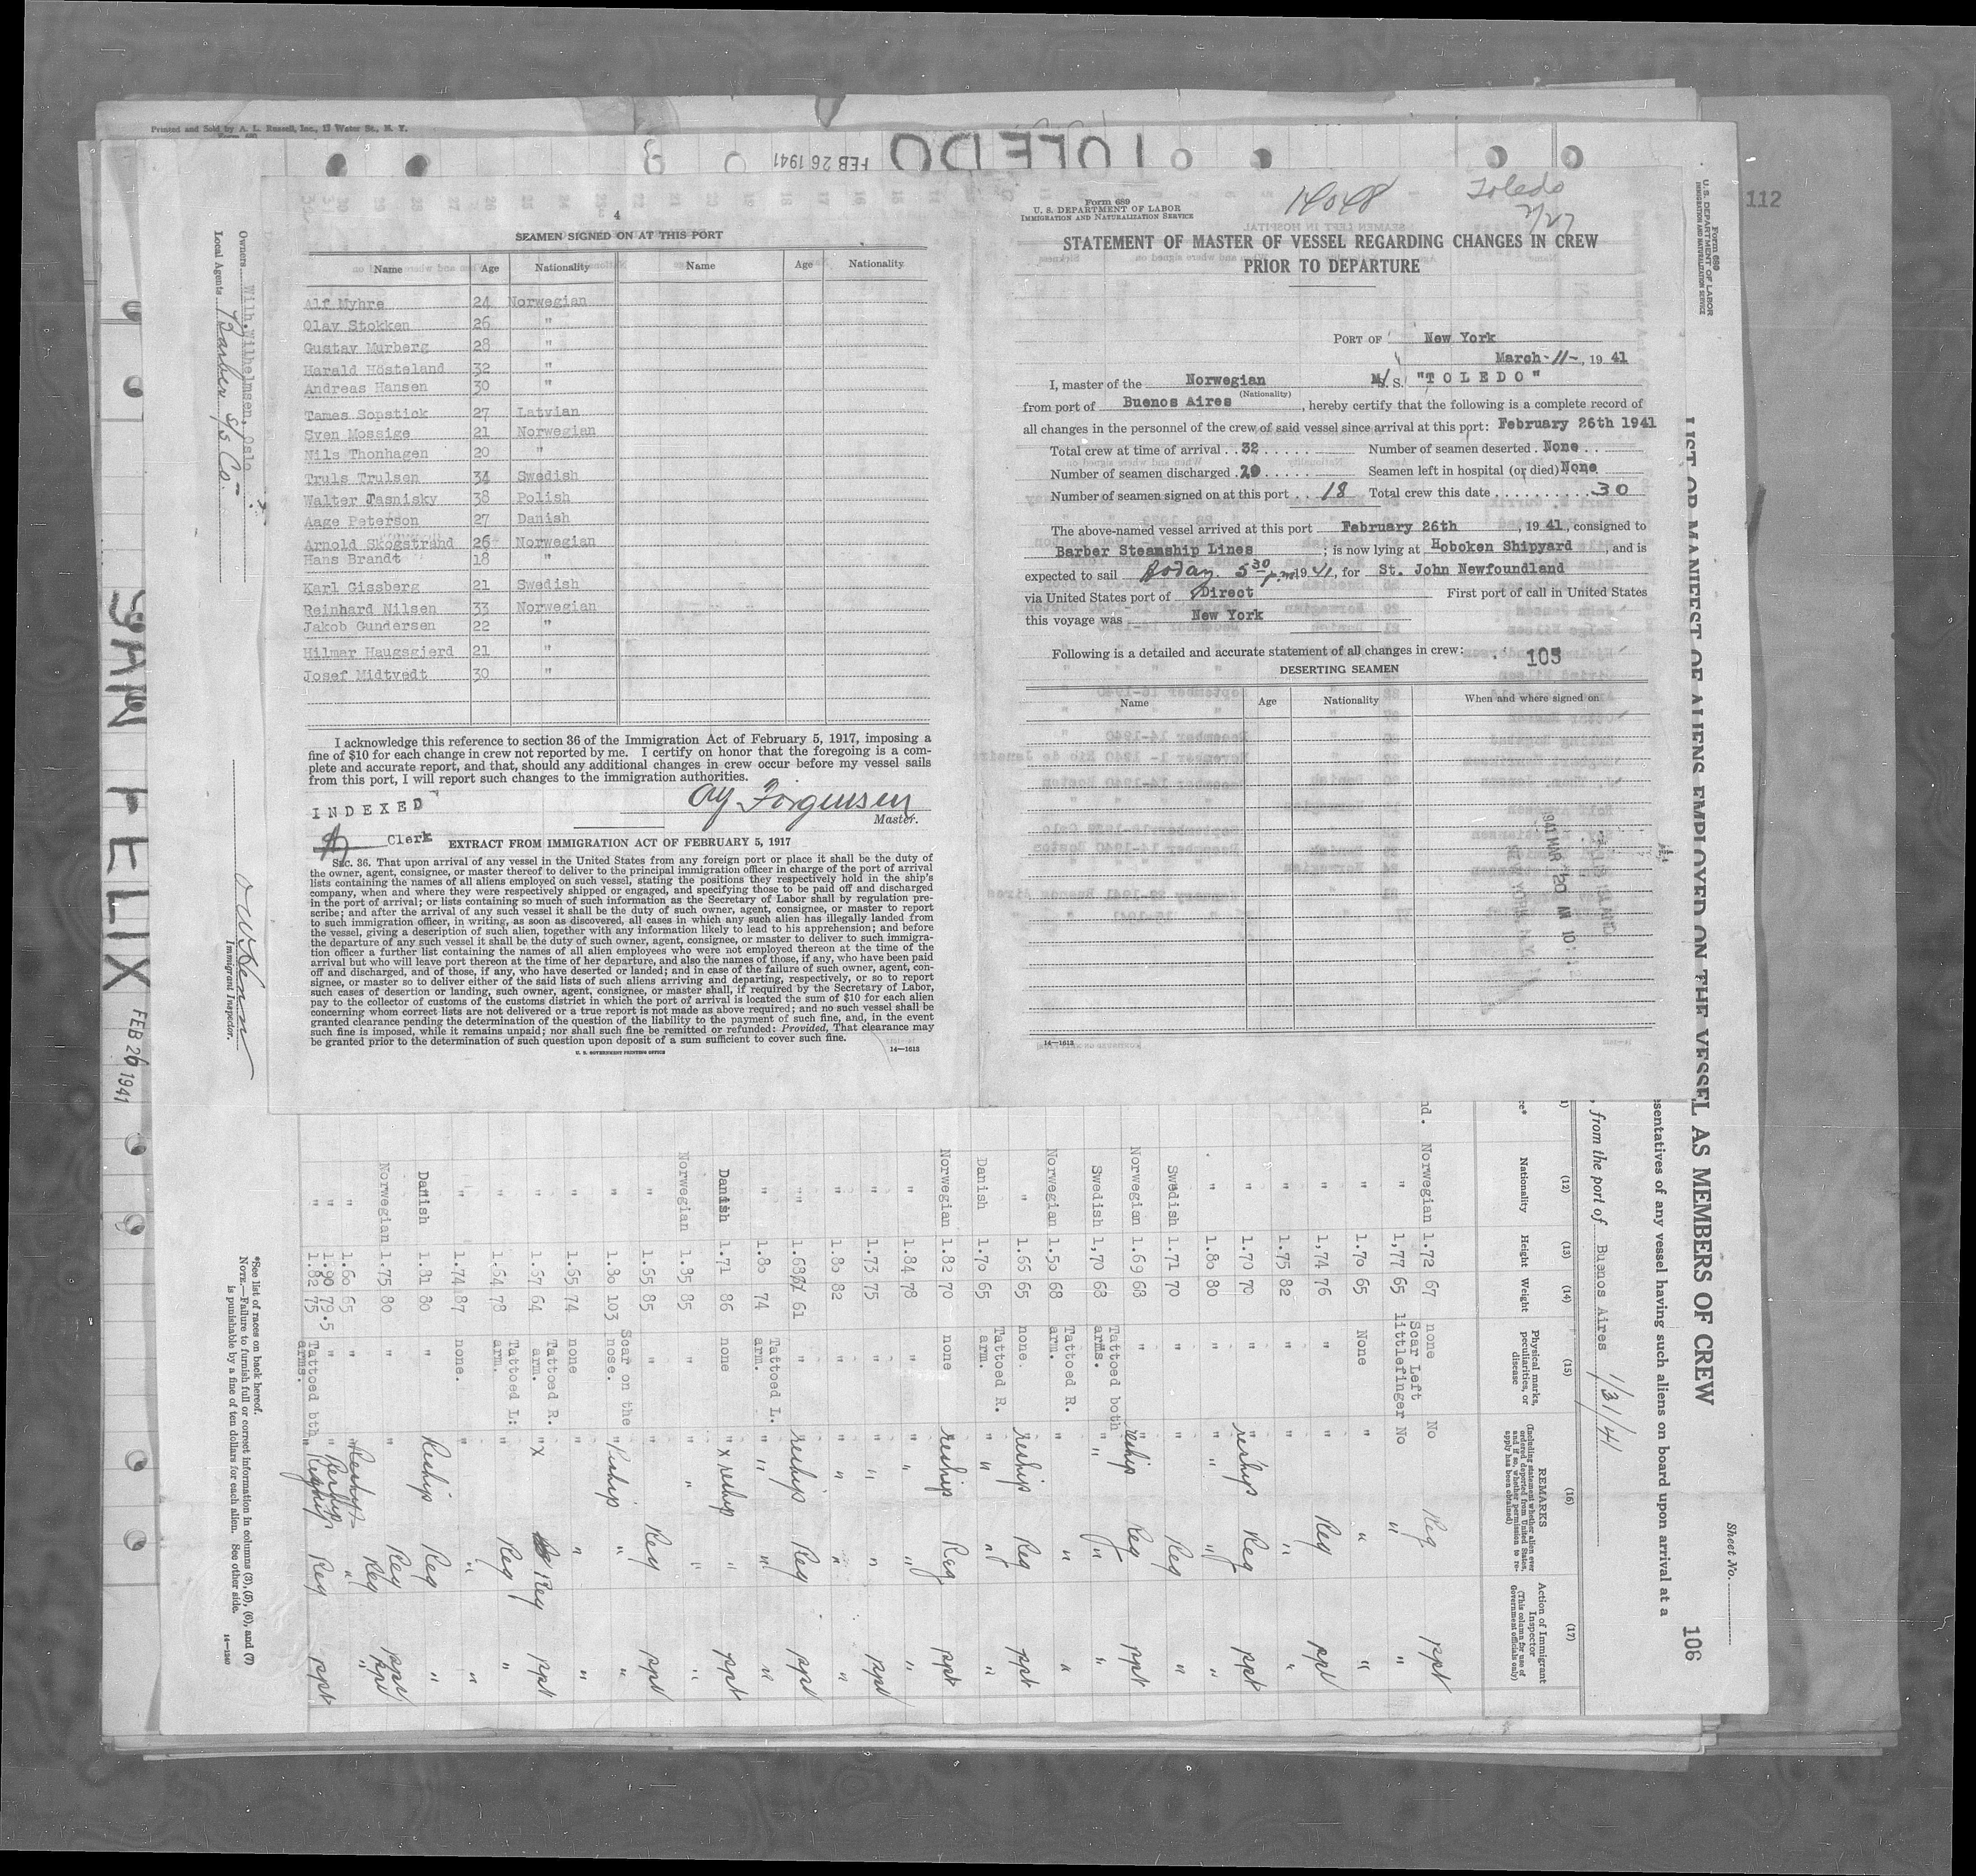 Printed and Sold by A. L. Russell, Inc., 17 Water St., N. Y.
TOLEDO
FEB 26 1941
4
SEAMEN SIGNED ON AT THIS PORT
Name Age Nationality Name Age Nationality
Alf Myhre 24 Norwegian
Olav Stokken 26 "
Gustav Murberg 28 "
Harald Hösteland 32 "
Andreas Hansen 30 "
Tames Sopstick 27 Latvian
Sven Mossige 21 Norwegian
Nils Thonhagen 20 "
Truls Trulsen 34 Swedish
Walter Jasnisky 38 Polish
Aage Peterson 27 Danish
Arnold Skogstrand 26 Norwegian
Hans Brandt 18 "
Karl Gissberg 21 Swedish
Reinhard Nilsen 33 Norwegian
Jakob Gundersen 22 "
Hilmar Haugsgjerd 21 "
Josef Midtvedt 30 "
I acknowledge this reference to section 36 of the Immigration Act of February 5, 1917, imposing a
fine of $10 for each change in crew not reported by me. I certify on honor that the foregoing is a com-
plete and accurate report, and that, should any additional changes in crew occur before my vessel sails
from this port, I will report such changes to the immigration authorities.
INDEXED
Jorgensen
Master.
Clerk
EXTRACT FROM IMMIGRATION ACT OF FEBRUARY 5, 1917
SEC. 36. That upon arrival of any vessel in the United States from any foreign port or place it shall be the duty of
the owner, agent, consignee, or master thereof to deliver to the principal immigration officer in charge of the port of arrival
lists containing the names of all aliens employed on such vessel, stating the positions they respectively hold in the ship's
company, when and where they were respectively shipped or engaged, and specifying those to be paid off and discharged
in the port of arrival; or lists containing so much of such information as the Secretary of Labor shall by regulation pre-
scribe; and after the arrival of any such vessel it shall be the duty of such owner, agent, consignee, or master to report
to such immigration officer, in writing, as soon as discovered, all cases in which any such alien has illegally landed from
the vessel, giving a description of such alien, together with any information likely to lead to his apprehension; and before
the departure of any such vessel it shall be the duty of such owner, agent, consignee, or master to deliver to such immigra-
tion officer a further list containing the names of all alien employees who were not employed thereon at the time of the
arrival but who will leave port thereon at the time of her departure, and also the names of those, if any, who have been paid
off and discharged, and of those, if any, who have deserted or landed; and in case of the failure of such owner, agent, con-
signee, or master so to deliver either of the said lists of such aliens arriving and departing, respectively, or so to report
such cases of desertion or landing, such owner, agent, consignee, or master shall, if required by the Secretary of Labor,
pay to the collector of customs of the customs district in which the port of arrival is located the sum of $10 for each alien
concerning whom correct lists are not delivered or a true report is not made as above required; and no such vessel shall be
granted clearance pending the determination of the question of the liability to the payment of such fine, and, in the event
such fine is imposed, while it remains unpaid; nor shall such fine be remitted or refunded: Provided, That clearance may
be granted prior to the determination of such question upon deposit of a sum sufficient to cover such fine.
U. S. GOVERNMENT PRINTING OFFICE 14—1613
Form 689
U. S. DEPARTMENT OF LABOR
IMMIGRATION AND NATURALIZATION SERVICE
14048
Toledo
2/27
STATEMENT OF MASTER OF VESSEL REGARDING CHANGES IN CREW
PRIOR TO DEPARTURE
PORT OF New York
March -11-, 19 41
I, master of the Norwegian M/S. S. "TOLEDO"
(Nationality)
from port of Buenos Aires, hereby certify that the following is a complete record of
all changes in the personnel of the crew of said vessel since arrival at this port: February 26th 1941
Total crew at time of arrival 32 Number of seamen deserted None
Number of seamen discharged 20 Seamen left in hospital (or died) None
Number of seamen signed on at this port 18 Total crew this date 30
The above-named vessel arrived at this port February 26th, 19 41, consigned to
Barber Steamship Lines; is now lying at Hoboken Shipyard, and is
expected to sail Today 5 30 p.m. 19 41, for St. John Newfoundland
via United States port of Direct First port of call in United States
this voyage was New York
Following is a detailed and accurate statement of all changes in crew:
105
DESERTING SEAMEN
Name Age Nationality When and where signed on
1941 MAR 20 AM 10
14—1613
112
Form 689
U. S. DEPARTMENT OF LABOR
IMMIGRATION AND NATURALIZATION SERVICE
LIST OR MANIFEST OF ALIENS EMPLOYED ON THE VESSEL AS MEMBERS OF CREW
Sheet No.
106
sentatives of any vessel having such aliens on board upon arrival at a
, from the port of Buenos Aires 1/31/41
(12) Nationality
(13) Height
(14) Weight
(15) Physical marks, peculiarities, or disease
(16) REMARKS
(Including statement whether alien ever ordered deported from United States, and if so, whether permission to reapply has been obtained)
(17) Action of Immigrant Inspector
(This column for use of Government officials only)
Norwegian 1.72 67 none No Reg ppt
" 1,77 65 Scar Left littlefinger No " "
" 1.70 65 None " " "
" 1,74 76 " " Reg ppt
" 1.75 82 " " " "
" 1.70 70 " " reship Reg ppt
" 1.80 80 " " " "
Swedish 1.71 70 " " Reg "
Norwegian 1.69 63 " " reship Reg ppt
Swedish 1,70 68 Tattoed both arms. " " "
Norwegian 1.50 68 Tattoed R. arm. " " "
" 1.65 65 none. " reship Reg ppt
Danish 1.70 65 Tattoed R. arm. " " "
Norwegian 1.82 70 none " reship Reg ppt
" 1.84 78 " " " "
" 1.73 75 " " " ppt
" 1.80 82 " " " "
" 1.68 61 " " reship Reg ppt
" 1.80 74 Tattoed L. arm. " " "
Danish 1.71 86 none " x reship " ppt
Norwegian 1.85 85 " " " "
" 1.65 85 " " Reg ppt
" 1.80 103 Scar on the nose. " Reship " "
" 1.65 74 none " " "
" 1.67 64 Tattoed R. arm. " x Reg ppt
" 1.64 78 Tattoed L: arm. " Reg "
" 1.74 87 none. " " "
Danish 1.81 80 " Reship Reg "
Norwegian 1.75 80 " " Reg ppt
" 1.60 65 " " Reship Reg ppt
" 1.90 79.5 " " Reship " "
" 1.82 75 Tattoed bth arms. " Reship Reg ppt
*See list of races on back hereof.
NOTE.—Failure to furnish full or correct information in columns (3), (5), (6), and (7)
is punishable by a fine of ten dollars for each alien. See other side.
14—1240
Owners Wilh. Wilhelmsen, Oslo
Local Agents Barber S/S Co.
Immigrant Inspector.
SAN FELIX
FEB 26 1941